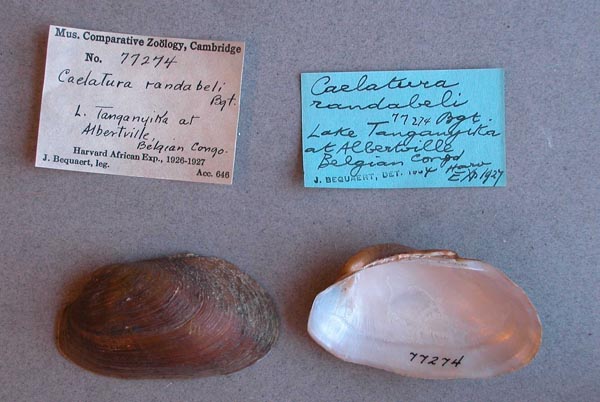 Mus. Comparative Zoölogy, Cambridge
No. 77274
Caelatura randabeli
Bgt.
L. Tanganyika at
Albertville,
Belgian Congo.
Harvard African Exp., 1926-1927
J. Bequaert, leg.
Acc. 646
Caelatura
randabeli
77274 Bgt.
Lake Tanganyika
at Albertville
Belgian Congo
Harv
J. BEQUAERT, DET.
Exp 1927
77274